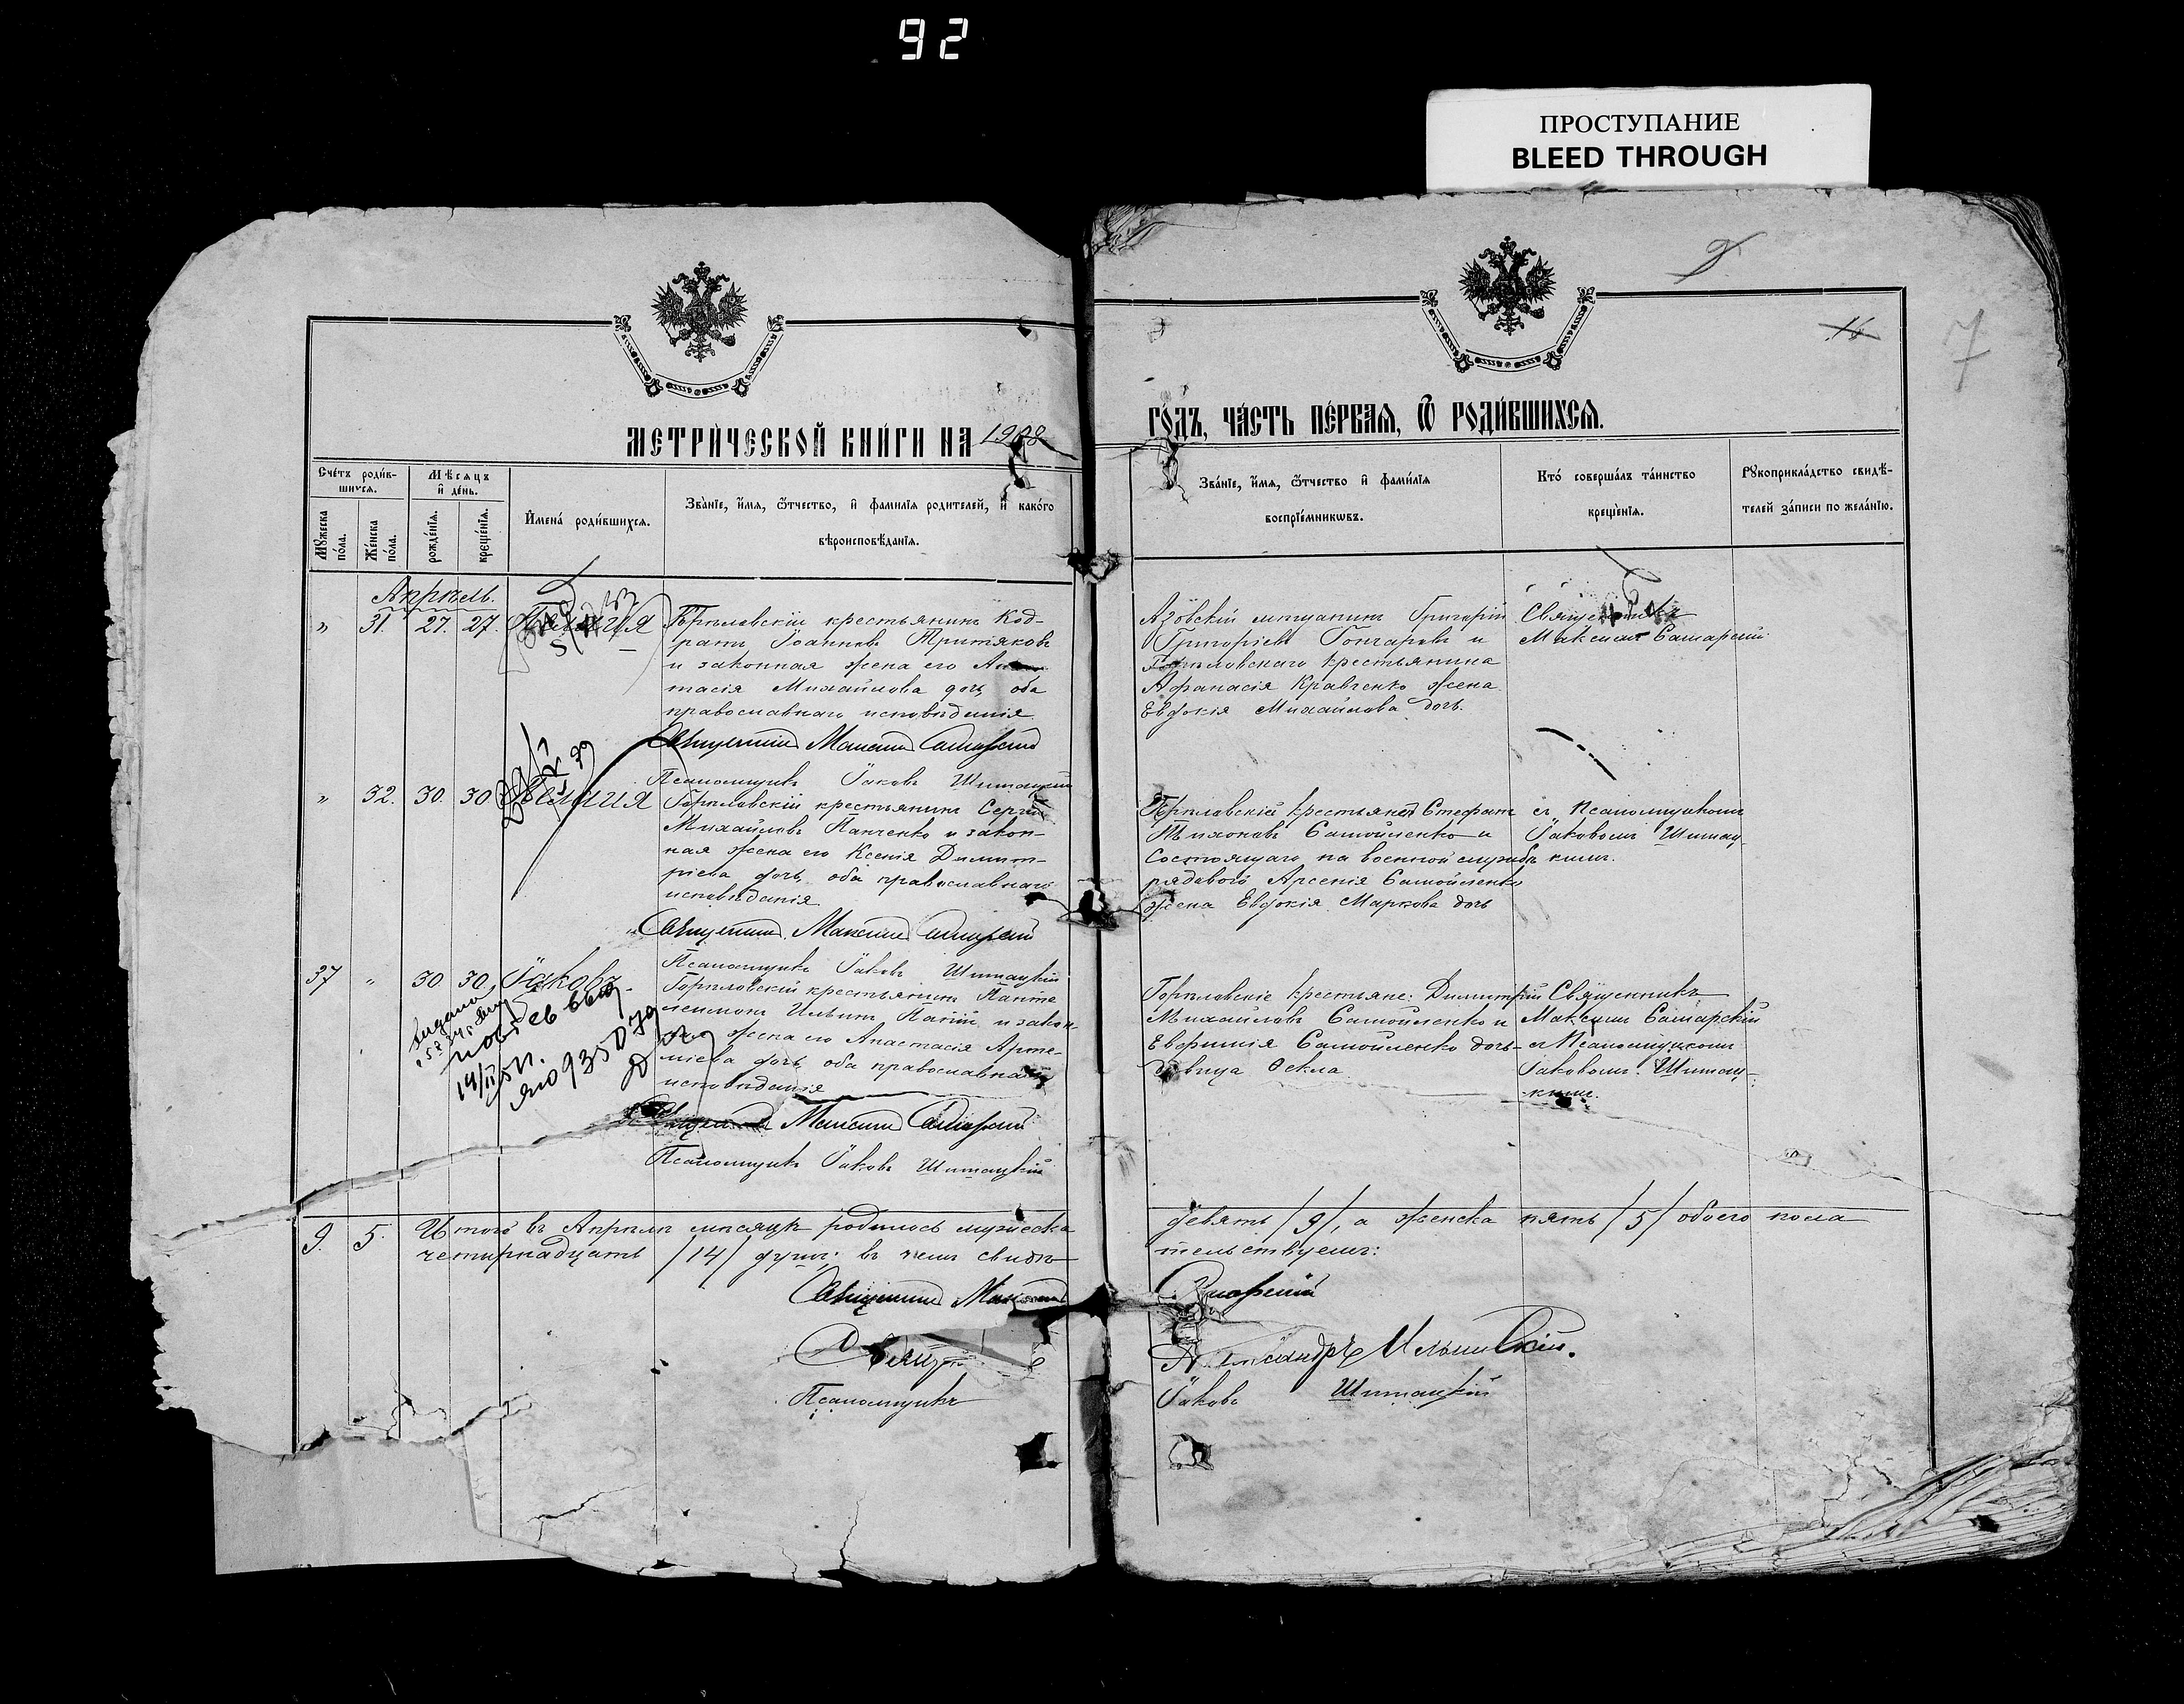 92
ПРОСТУПАНИЕ
BLEED THROUGH
7
16
МЕТРИ́ЧЕСКОЙ КНИ́ГИ НА 1908
ГО́ДЪ, ЧА́СТЬ ПЕ́РВАѦ, Ѿ РОДИ́ВШИХСѦ.
Сче́тъ роди́в-
шихсѧ.
Мѣ́сѧцъ
и҆ де́нь.
Му́жеска
по́ла.
Же́нска
по́ла.
рожде́нїѧ.
креще́нїѧ.
И҆мена̀ роди́вшихсѧ.
Зва́нїе, и҆́мѧ, ѻ҆́тчество, и҆ фами́лїѧ роди́телей, и҆ како́гѡ
вѣроисповѣ́данїѧ.
Зва́нїе, и҆́мѧ, ѻ҆́тчество и҆ фами́лїѧ
воспрїе́мникѡвъ.
Кто̀ соверша́лъ та́инство
креще́нїѧ.
Рꙋкоприкла́дство свидѣ́-
телей за́писи по жела́нїю.
Апрѣль.
" 31. 27. 27.
Горѣловскій крестьянинъ Код-
ратъ Іоанновъ Третяковъ
и законная жена его
тасія Михайлова дочь, оба
православнаго исповѣданія.
Священникъ Максимъ Самарскій
Псаломщикъ Іаковъ Шитацкій
Азовскій мѣщанинъ Григорій
Григоріевъ Гончаровъ и
Горѣловскаго крестьянина
Афанасія Кравченко жена
Евдокія Михайлова дочь.
Священникъ
Максимъ Самарскій
" 32. 30. 30
Горѣловскій крестьянинъ Сергій
Михайловъ Панченко и закон-
ная жена его Ксенія Димит-
ріева дочь, оба православнаго
исповѣданія.
Священникъ Максимъ Самарскій
Псаломщикъ Іаковъ Шитацкій
Горѣловскій крестьянинъ Стефанъ
Самойленко и
Состоящаго на военной службѣ
рядового Арсенія Самойленко
жена Евдокія Маркова дочь
съ Псаломщикомъ
Іаковомъ Шитац-
кимъ.
37 " 30 30 Іаковъ.
Горѣловскій крестьянинъ Панте
леимонъ Ильинъ и закон-
ная жена его Анастасія Арте-
міева дочь, оба православнаго
исповѣданія
Священникъ Максимъ Самарскій
Псаломщикъ Іаковъ Шитацкій
Горѣловскіе крестьяне: Димитрій
Михайловъ Самойленко и
Евфимія Самойленко дочь-
дѣвица Ѳекла
Священникъ
Максимъ Самарскій
съ Псаломщикомъ
Іаковомъ Шитац-
кимъ.
9. 5. Итого въ Апрѣлѣ мѣсяцѣ родилось мужеска
девять /9/, а женска пять /5/ обоего пола
четырнадцать /14/ душъ; въ чемъ свидѣ-
тельствуемъ:
Священникъ Максимъ
Самарскій
Псаломщикъ
Іаковъ Шитацкій